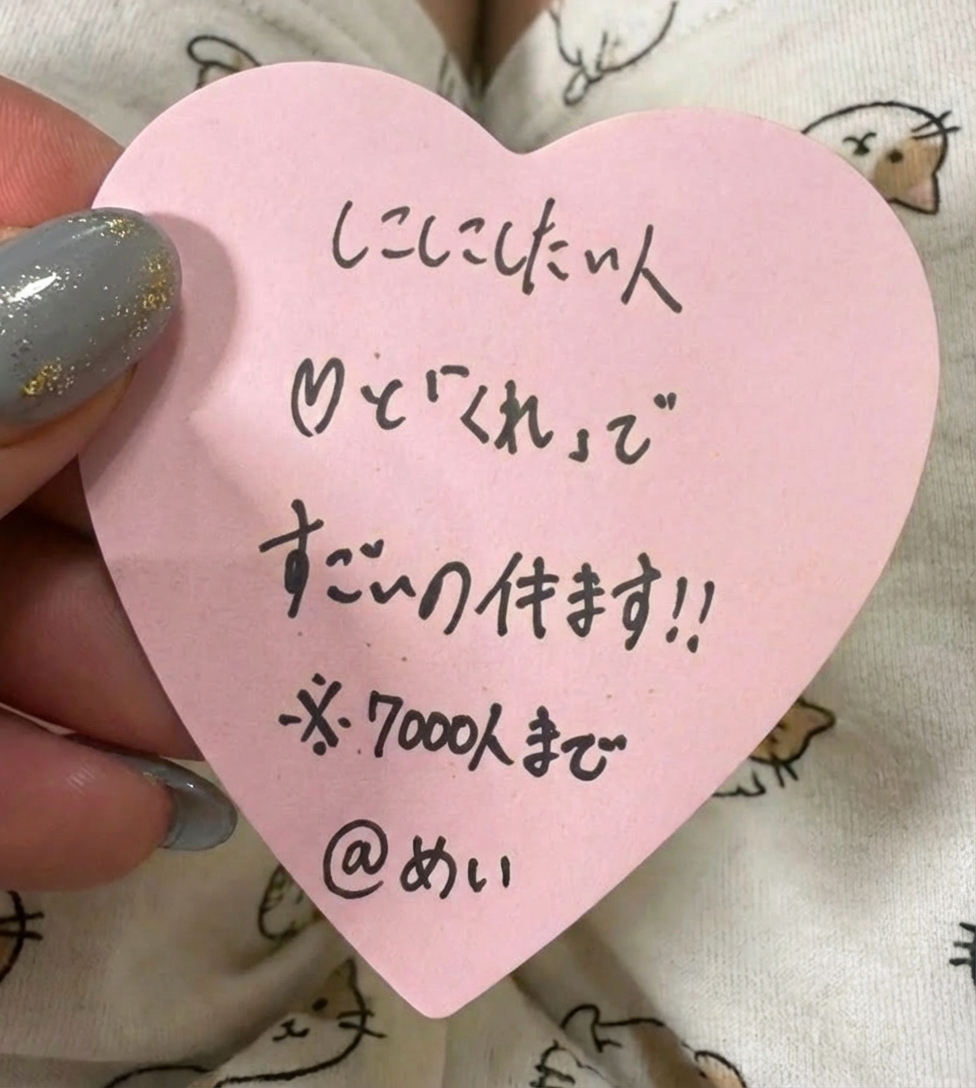 しこしこしたい人
♡と「くれ」で
すごいの件きます!!
※7000人まで
@めい